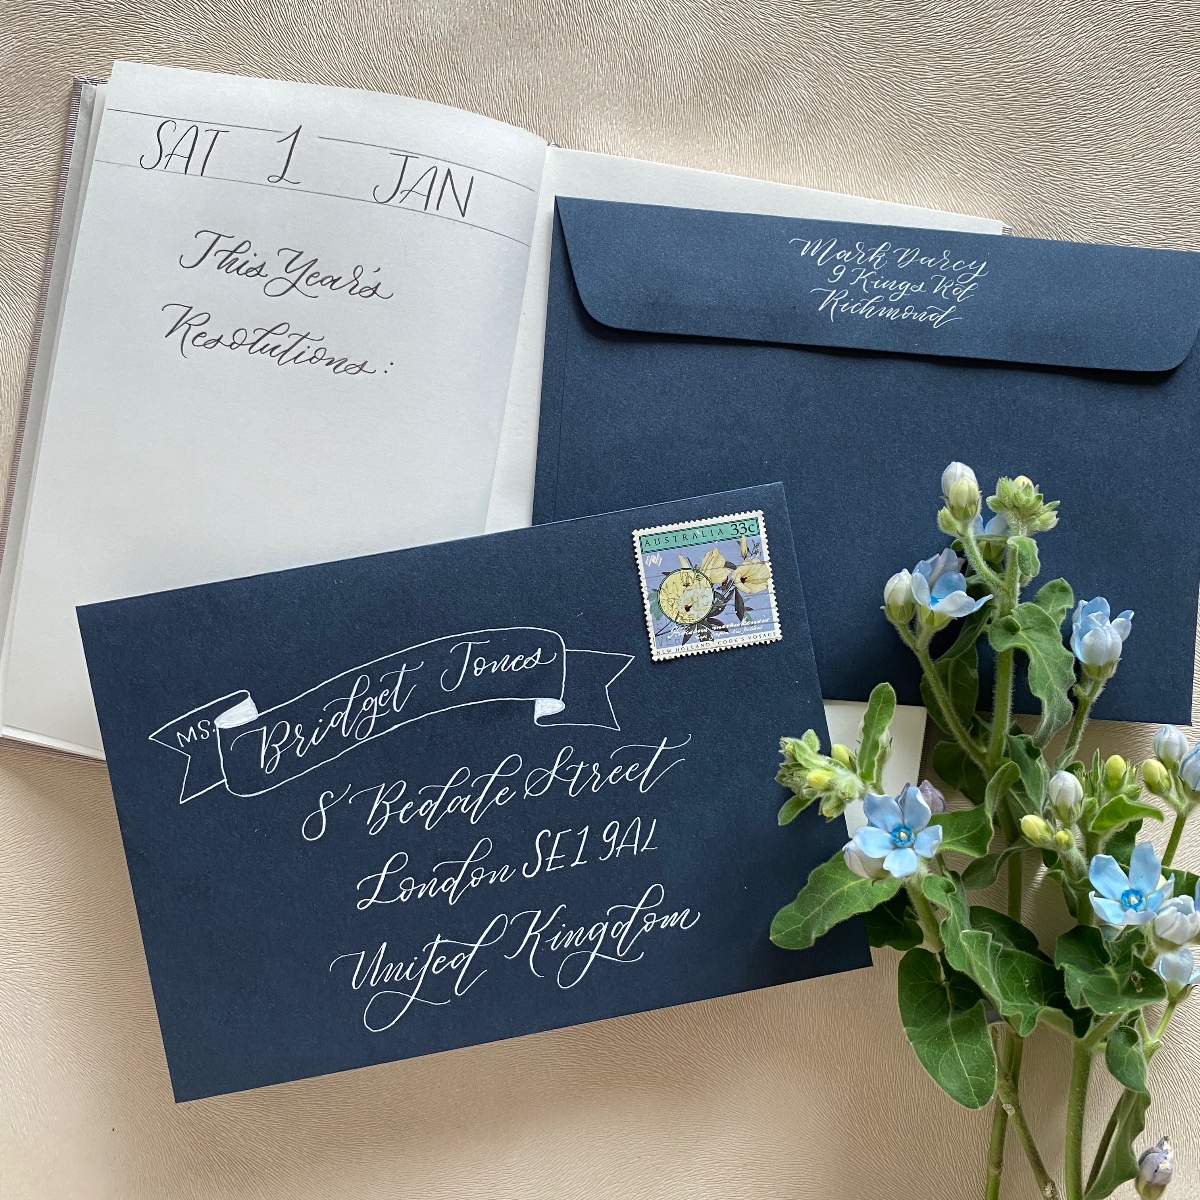 SAT 1 JAN
This Year's
Resolutions:
Mark Darcy
9 Kings Rd
Richmond
AUSTRALIA 33c
NEW HOLLAND - COOK'S VOYAGE
MS. Bridget Jones
8 Bedale Street
London SE1 9AL
United Kingdom